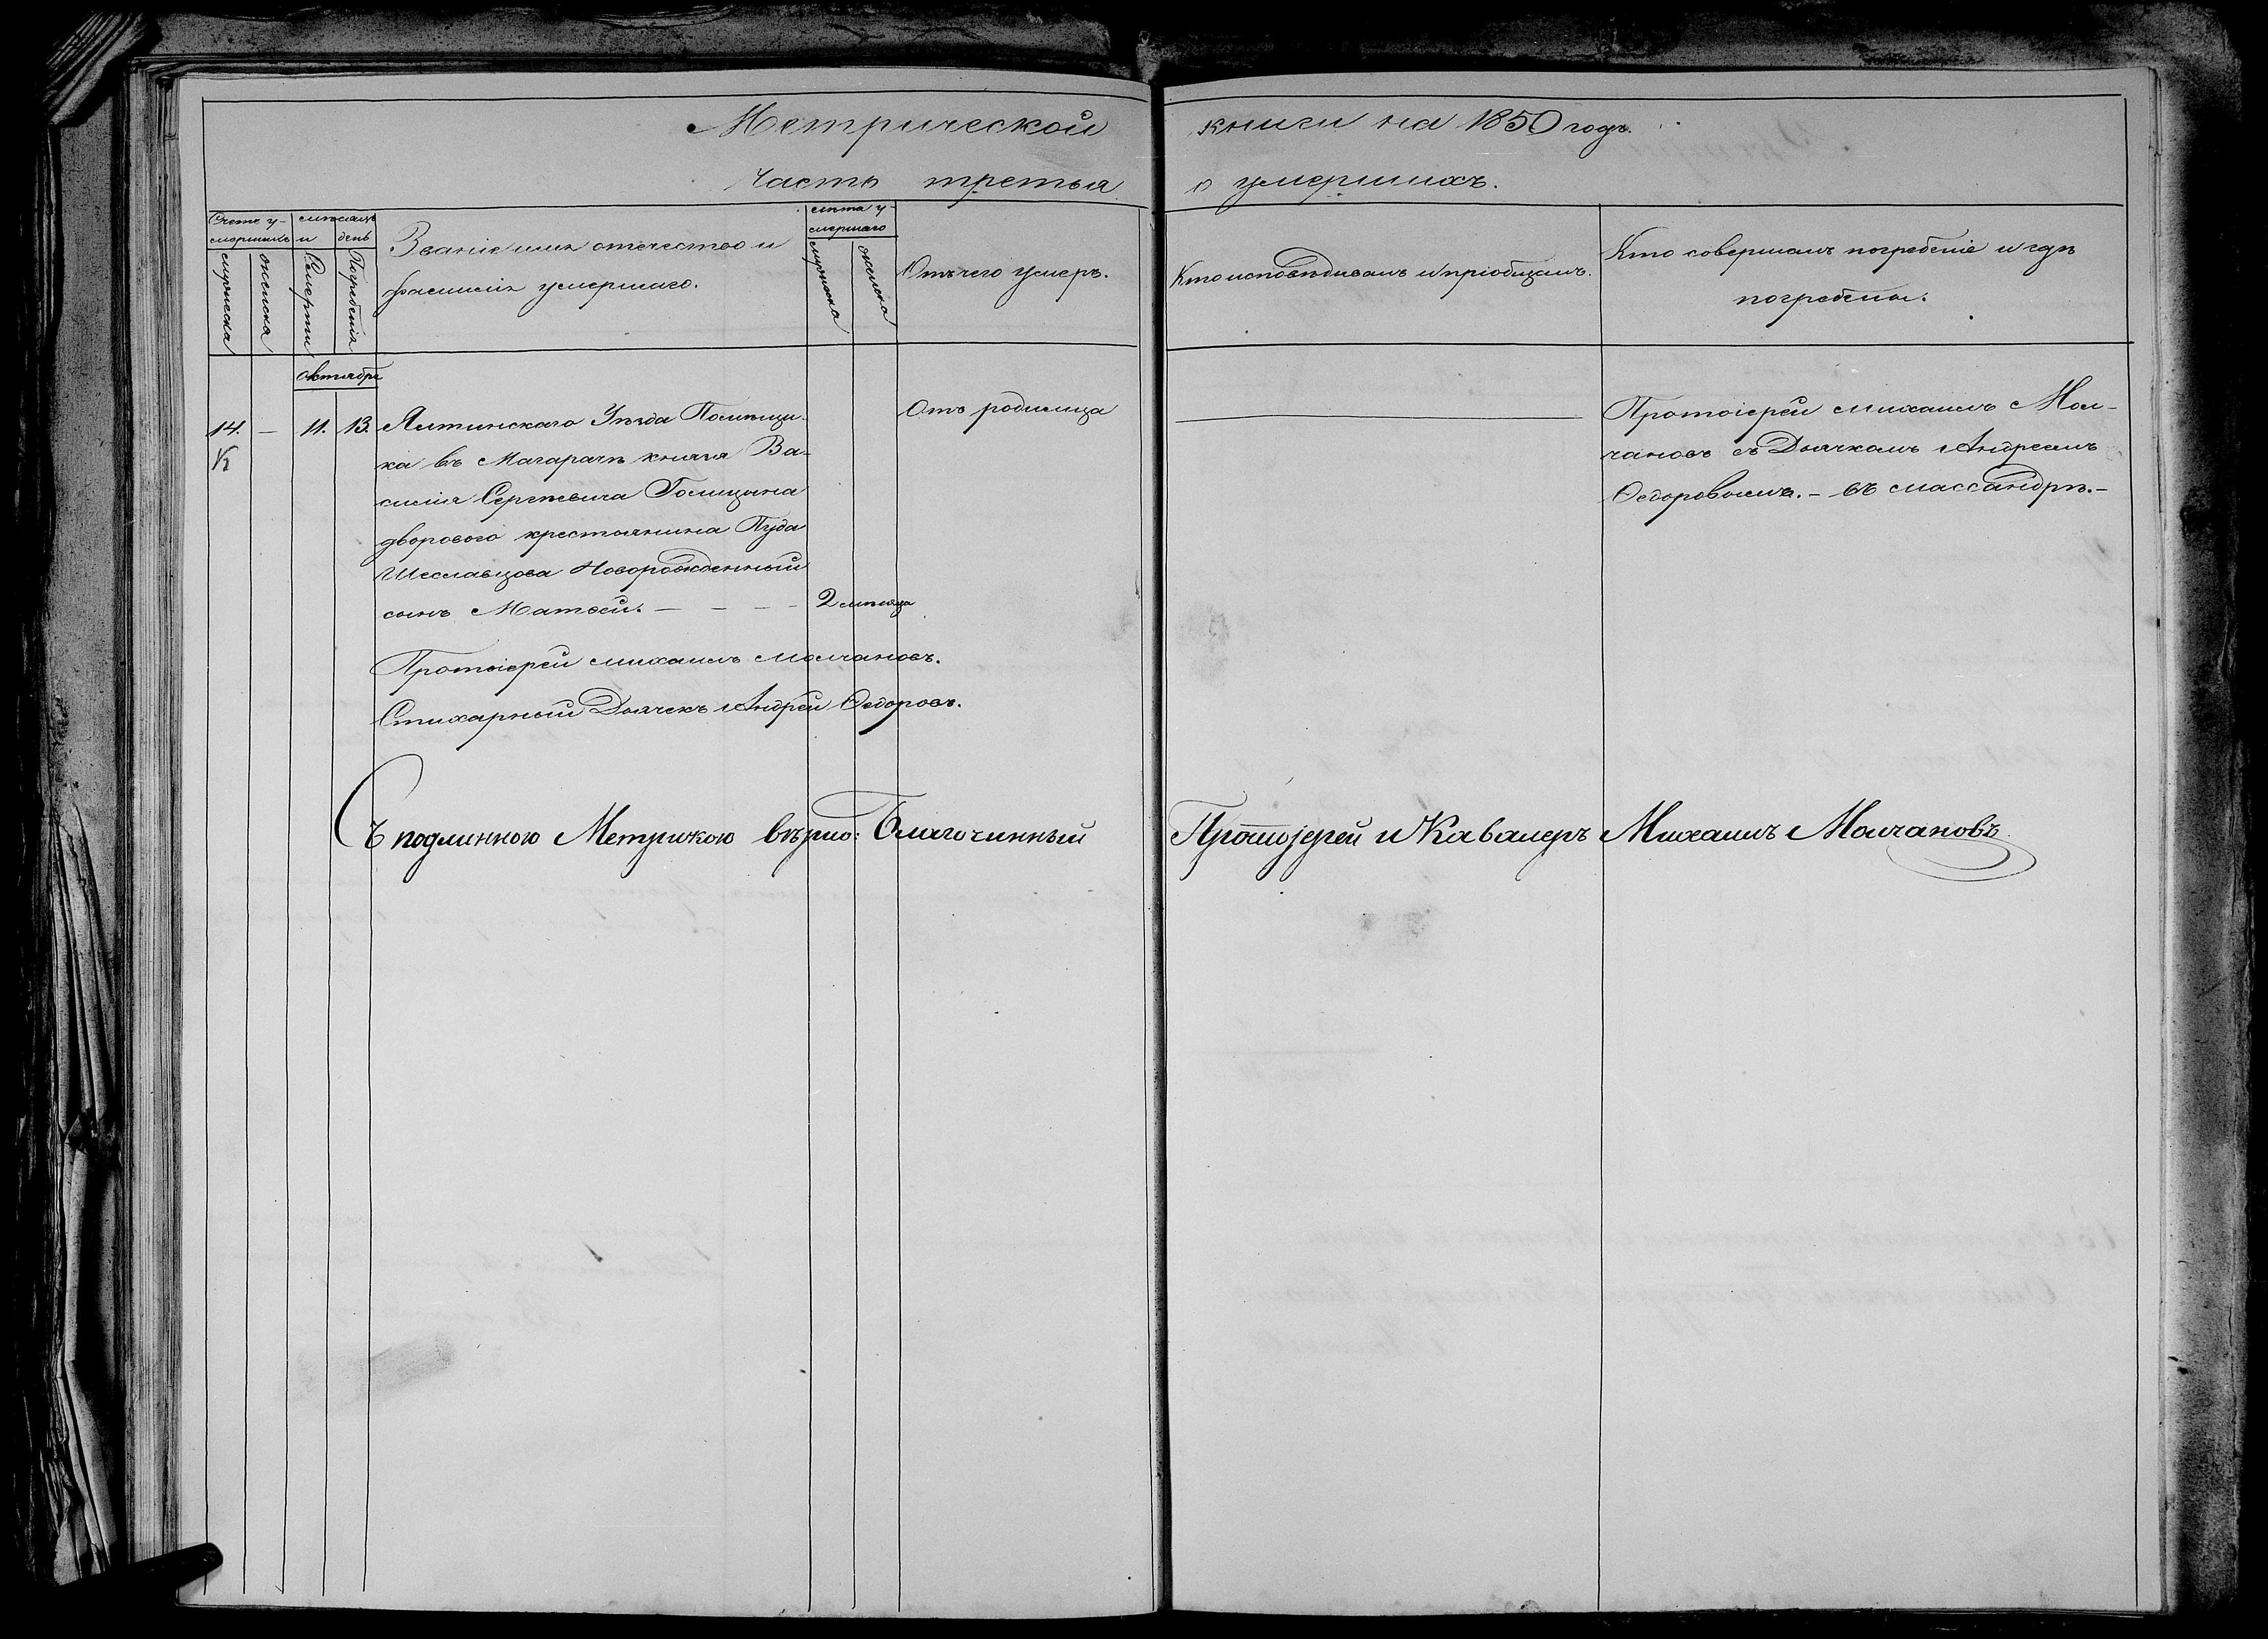 Метрической книги на 1850 годъ.
Часть третья о умершихъ.
Счетъ умершихъ
мужеска
женска
мѣсяцъ и день
Смерти
Погребенія
Званіе имя отечество и
фамилія умершаго.
лѣта умершаго
мужеска
женска
Отъ чего умеръ.
Кто исповѣдывалъ и пріобщалъ.
Кто совершалъ погребеніе и гдѣ
погребены.
октября
14. — 11. 13. Ялтинскаго Уѣзда Помѣщи-
ка въ Магарачѣ князя Ва-
силія Сергѣевича Голицына
двороваго крестьянина Пуда
Шеславцова Новорожденный
сынъ Матѳей. — — — — 2 мѣсяца
Отъ родимца
Протоіерей Михаилъ Мол-
чановъ съ Дьячкомъ Андреемъ
Ѳедоровымъ. — въ Массандрѣ. —
Протоіерей Михаилъ Молчановъ.
Стихарный Дьячекъ Андрей Ѳедоровъ.
Съ подлинною Метрикою вѣрно: Благочинный Протоіерей и Кавалеръ Михаилъ Молчановъ